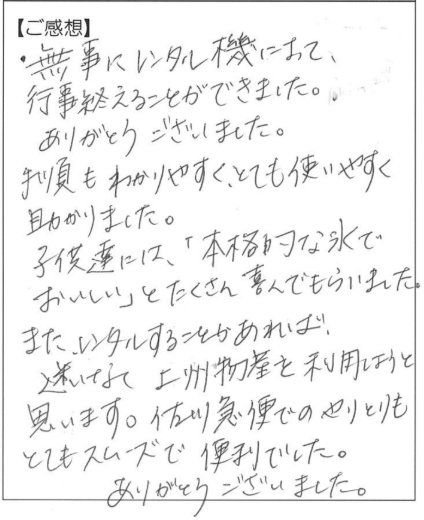 【ご感想】
・無事にレンタル機におて、
行事終えることができました。
ありがとうございました。
手順もわかりやすく、とても使いやすく
助かりました。
子供達には、「本格的な氷で
おいしい」とたくさん喜んでもらいました。
また、レンタルすることがあれば、
迷いなく上州物産を利用しようと
思います。佐川急便でのやりとりも
とてもスムーズで便利でした。
ありがとうございました。